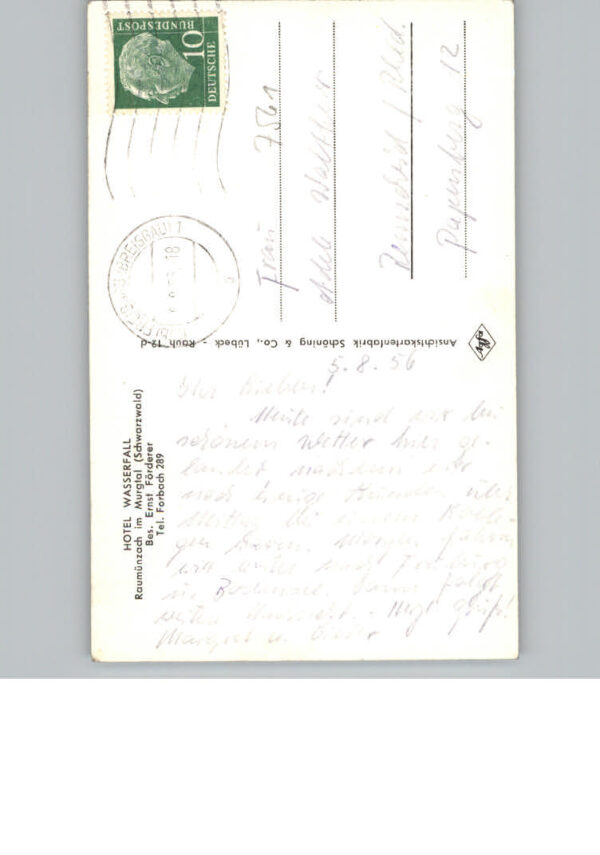 HOTEL WASSERFALL
Raumünzach im Murgtal (Schwarzwald)
Bes. Ernst Förderer
Tel. Forbach 289
5.8.56
Ihr Lieben!
Heute sind wir bei
schönem Wetter hier ge-
landet nachdem wir
noch einige Stunden über
Mittag bei einem Kolle-
gen waren. Morgen fahren
wir weiter nach
Bodensee. Dann folgt
weitere Nachricht. - Herzl. Grüße!
Margret u.
Ansichtskartenfabrik Schöning & Co., Lübeck - Rauh 12-d
DEUTSCHE
BUNDESPOST
10
BREISGAU 1
18
7561
Frau
Remscheid / Rhld.
Papenberg 12